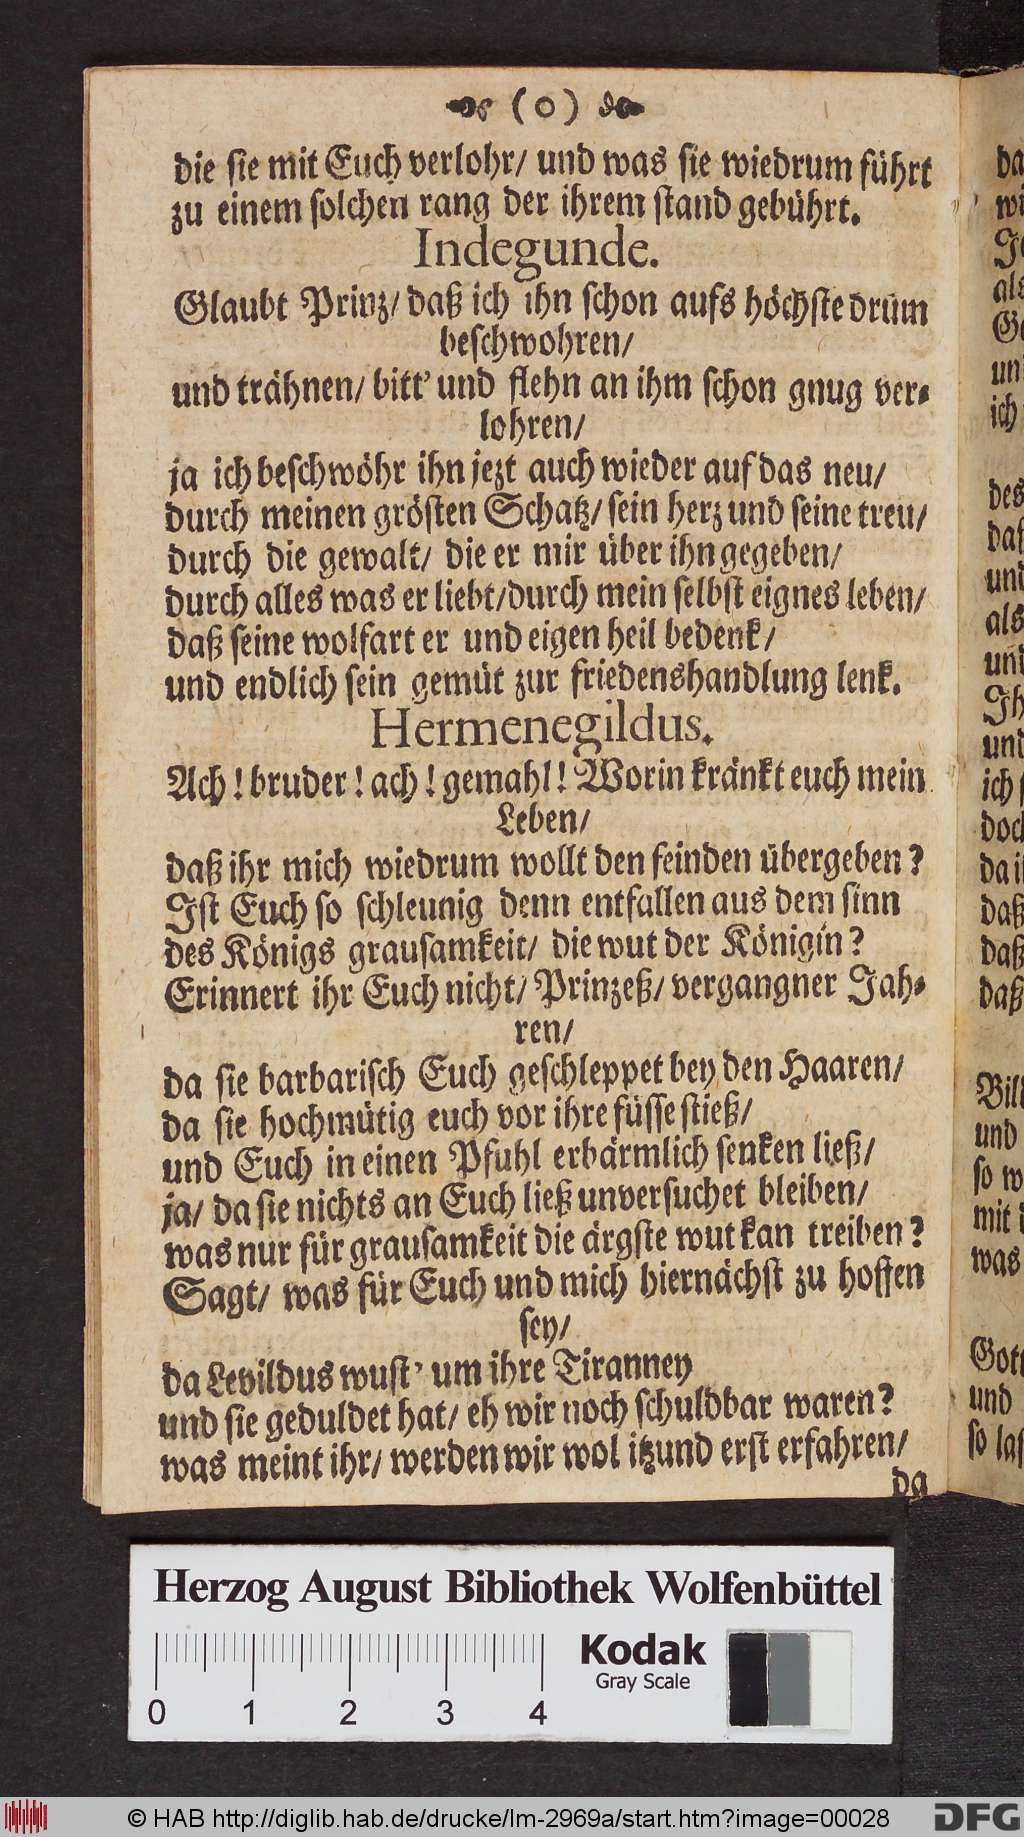 (o)
die sie mit Euch verlohr/ und was sie wiedrum führt
zu einem solchen rang der ihrem stand gebührt.
Indegunde.
Glaubt Prinz/ daß ich ihn schon aufs höchste drüm
beschwohren/
und trähnen/ bitt' und flehn an ihm schon gnug ver-
lohren/
ja ich beschwöhr ihn jezt auch wieder auf das neu/
durch meinen grösten Schatz/ sein herz und seine treu/
durch die gewalt/ die er mir über ihn gegeben/
durch alles was er liebt/ durch mein selbst eignes leben/
daß seine wolfart er und eigen heil bedenk/
und endlich sein gemüt zur friedenshandlung lenk.
Hermenegildus.
Ach! bruder! ach! gemahl! Worin kränkt euch mein
Leben/
daß ihr mich wiedrum wollt den feinden übergeben?
Ist Euch so schleunig denn entfallen aus dem sinn
des Königs grausamkeit/ die wut der Königin?
Erinnert ihr Euch nicht/ Prinzeß/ vergangner Jah-
ren/
da sie barbarisch Euch geschleppet bey den Haaren/
da sie hochmütig euch vor ihre füsse stieß/
und Euch in einen Pfuhl erbärmlich senken ließ/
ja/ da sie nichts an Euch ließ unversuchet bleiben/
was nur für grausamkeit die ärgste wut kan treiben?
Sagt/ was für Euch und mich hiernächst zu hoffen
sey/
da Levildus wust' um ihre Tiranney
und sie geduldet hat/ eh wir noch schuldbar waren?
was meint ihr/ werden wir wol itzund erst erfahren/
da
Herzog August Bibliothek Wolfenbüttel
Kodak
Gray Scale
0 1 2 3 4
© HAB http://diglib.hab.de/drucke/lm-2969a/start.htm?image=00028
DFG